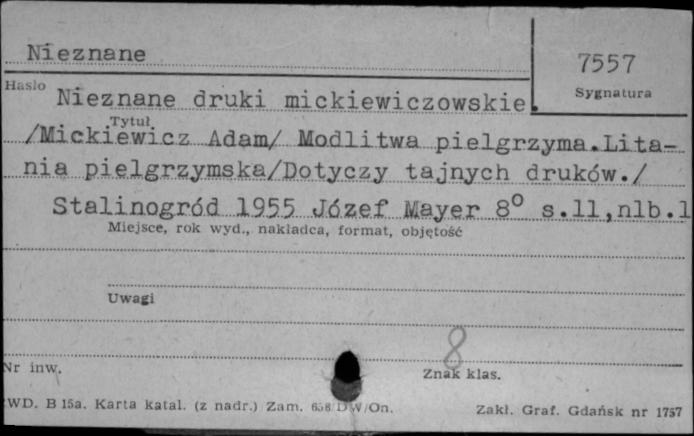 Nieznane
7557
Hasło
Sygnatura
Nieznane druki mickiewiczowskie.
Tytuł
/Mickiewicz Adam/ Modlitwa pielgrzyma.Lita-
nia pielgrzymska/Dotyczy tajnych druków./
Stalinogród 1955 Józef Mayer 8° s.11,nlb.1
Miejsce, rok wyd., nakładca, format, objętość
Uwagi
8
Nr inw.
Znak klas.
WD. B 15a. Karta katal. (z nadr.) Zam. 658/DW/On.
Zakł. Graf. Gdańsk nr 1757